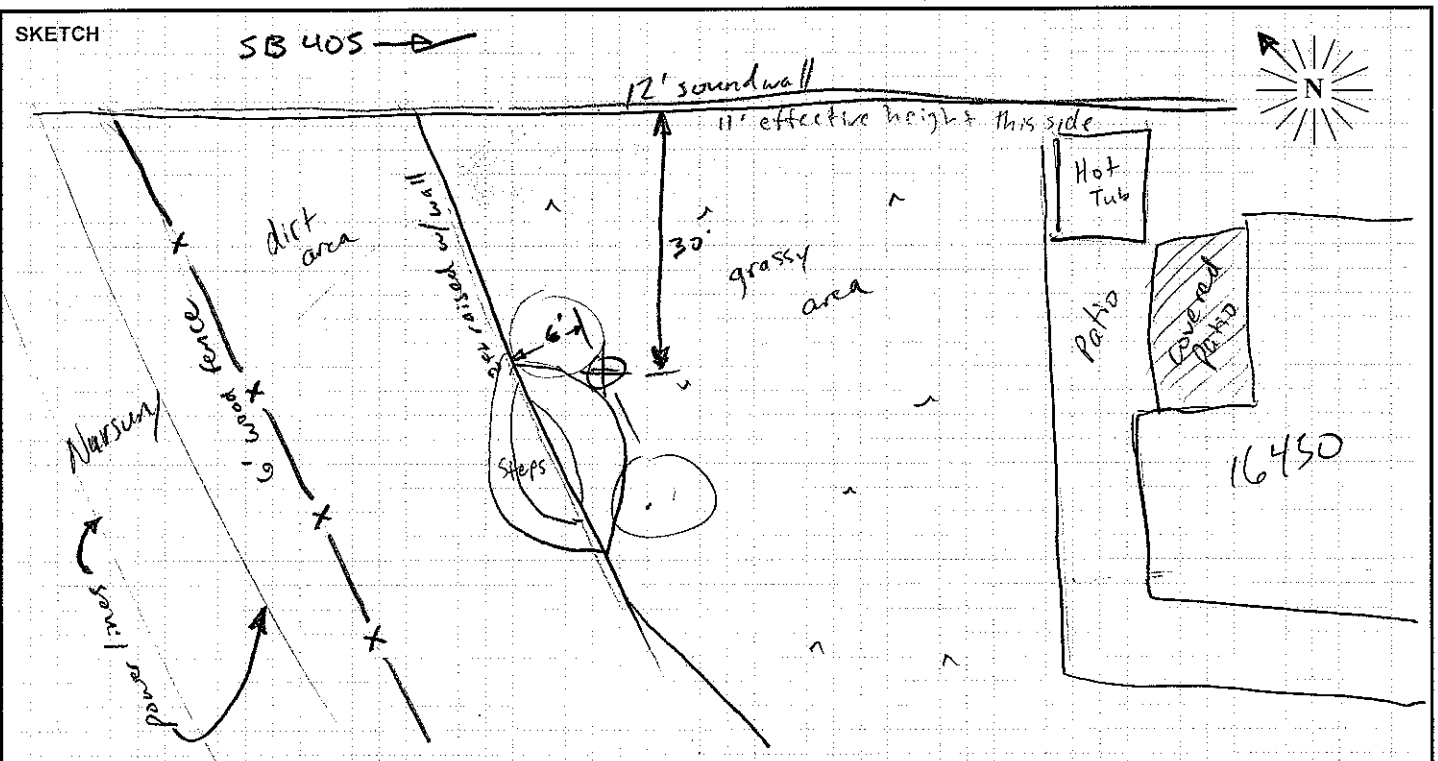 SKETCH
SB 405
N
12' soundwall
11' effective height this side
Hot
Tub
dirt
area
raised w/ wall
30'
grassy
area
6'
Patio
covered
patio
6' wood fence
Nursury
Steps
16450
power lines